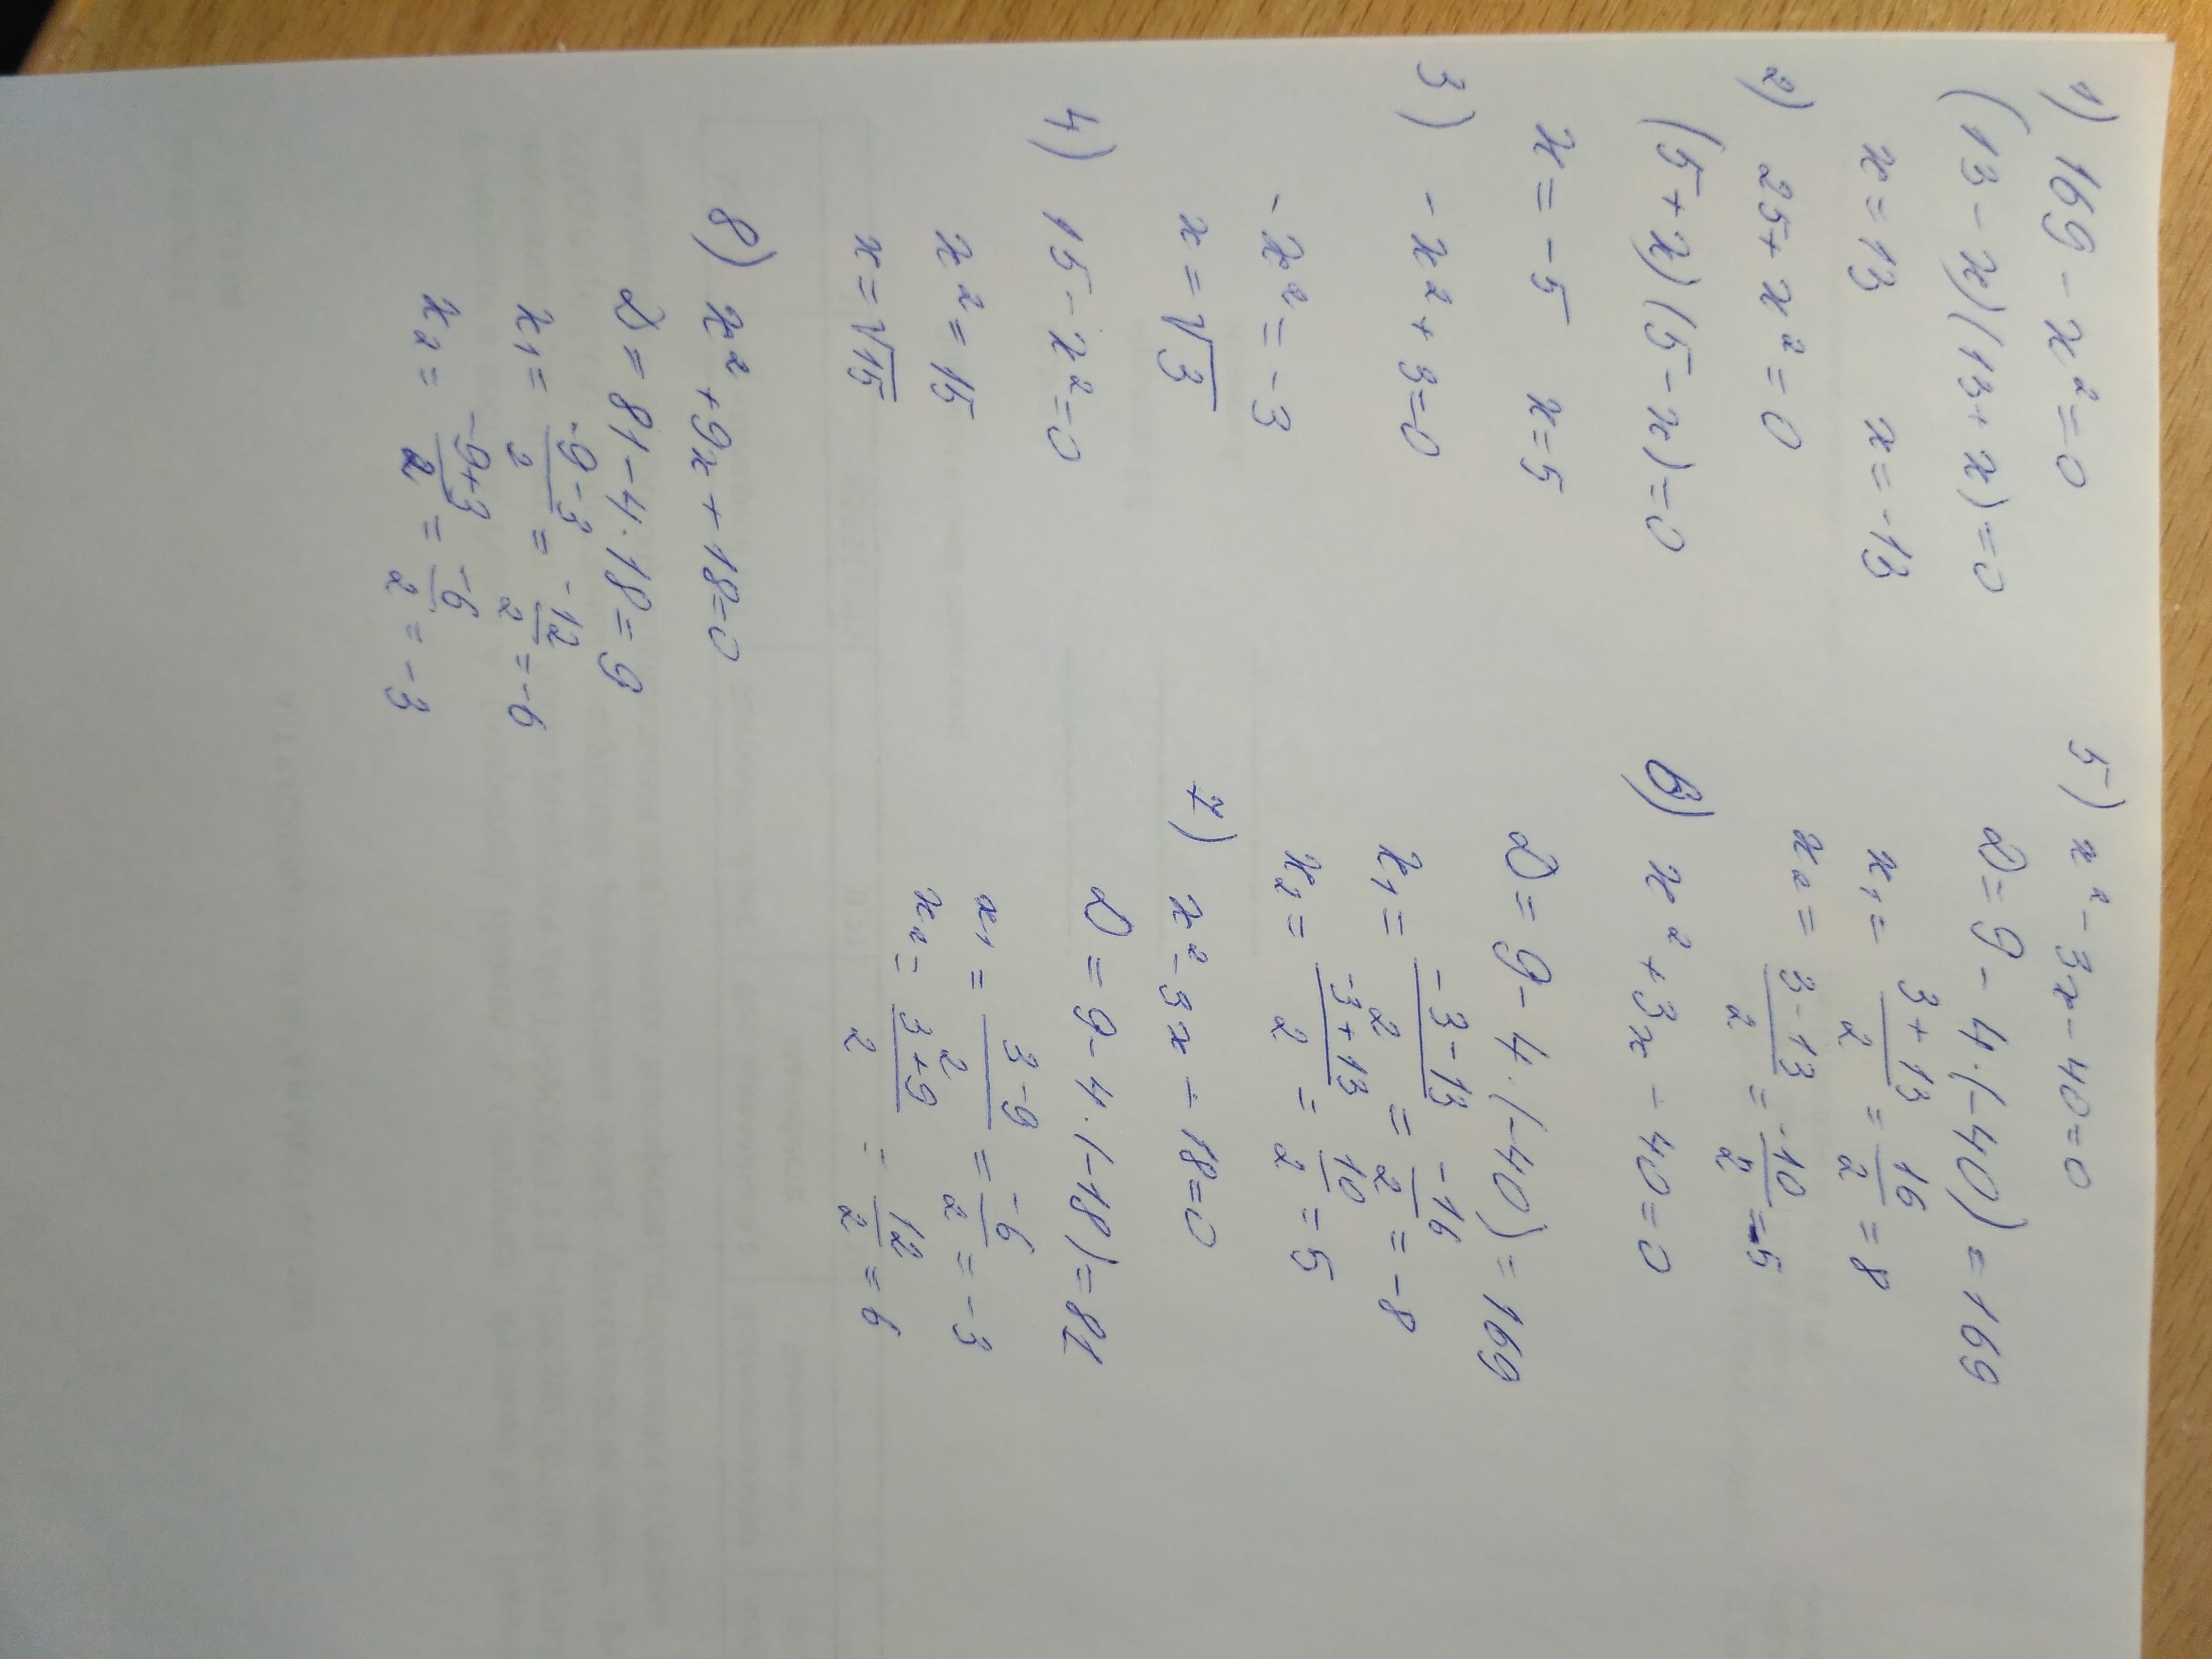 1) 169 - x² = 0
(13 - x)(13 + x) = 0
x = 13 x = -13
2) 25 + x² = 0
(5 + x)(5 - x) = 0
x = -5 x = 5
3) - x² + 3 = 0
- x² = - 3
x = √3
4) 15 - x² = 0
x² = 15
x = √15
8) x² + 9x + 18 = 0
D = 81 - 4 · 18 = 9
x₁ = (-9 - 3)/2 = -12/2 = -6
x₂ = (-9 + 3)/2 = -6/2 = -3
5) x² - 3x - 40 = 0
D = 9 - 4 · (-40) = 169
x₁ = (3 + 13)/2 = 16/2 = 8
x₂ = (3 - 13)/2 = -10/2 = -5
6) x² + 3x - 40 = 0
D = 9 - 4 · (-40) = 169
x₁ = (-3 - 13)/2 = -16/2 = -8
x₂ = (-3 + 13)/2 = 10/2 = 5
7) x² - 3x - 18 = 0
D = 9 - 4 · (-18) = 81
x₁ = (3 - 9)/2 = -6/2 = -3
x₂ = (3 + 9)/2 = 12/2 = 6